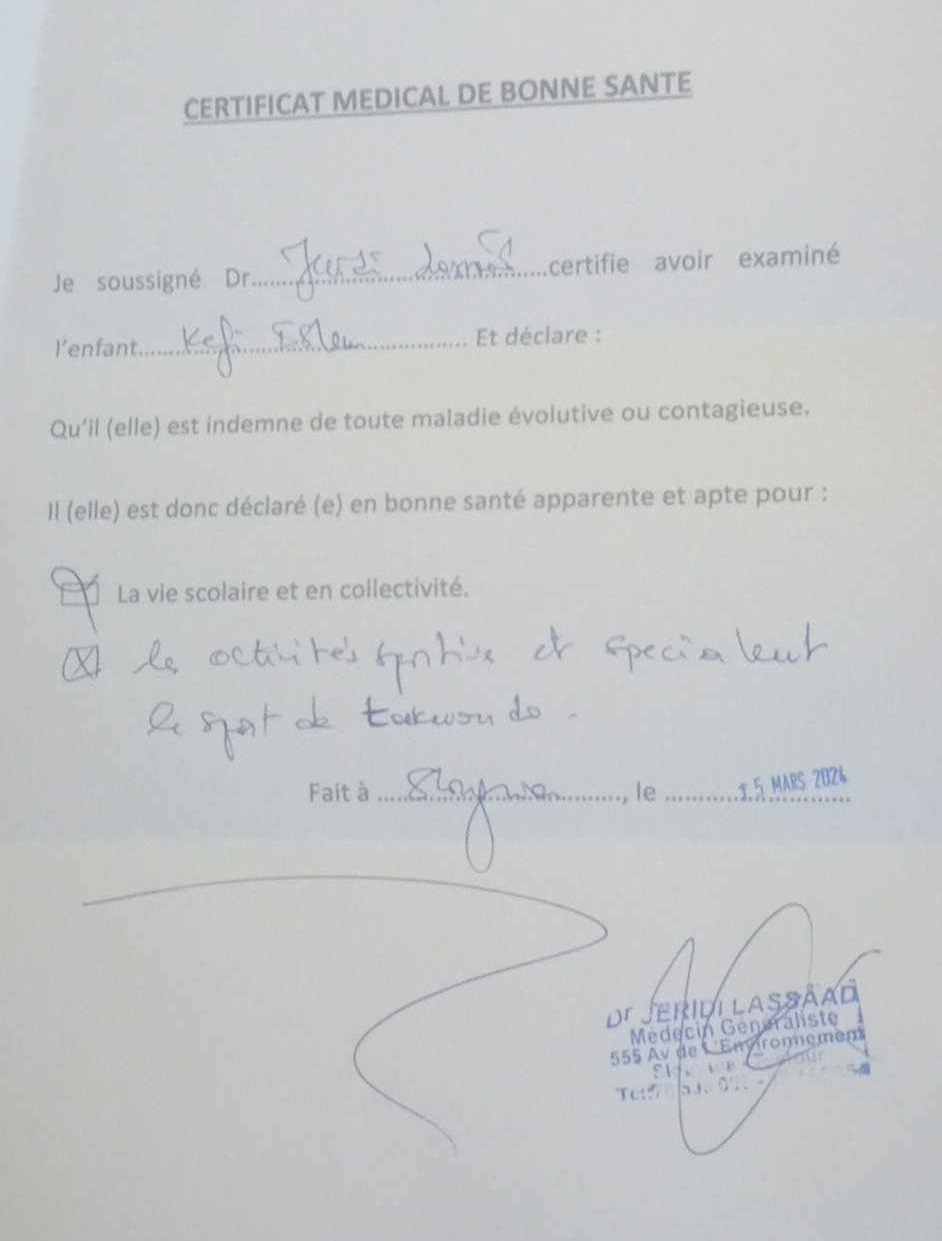 CERTIFICAT MEDICAL DE BONNE SANTE
Je soussigné Dr.......................................certifie avoir examiné
l'enfant......Kefi Eslem.................. Et déclare :
Qu'il (elle) est indemne de toute maladie évolutive ou contagieuse.
Il (elle) est donc déclaré (e) en bonne santé apparente et apte pour :
La vie scolaire et en collectivité.
les activités sportive et specialeut
le sport de taekwondo.
Fait à ................................, le ..........15 MARS 2024
Dr JERIDI LASSAAD
Médecin Généraliste
555 Av de L'Environnement